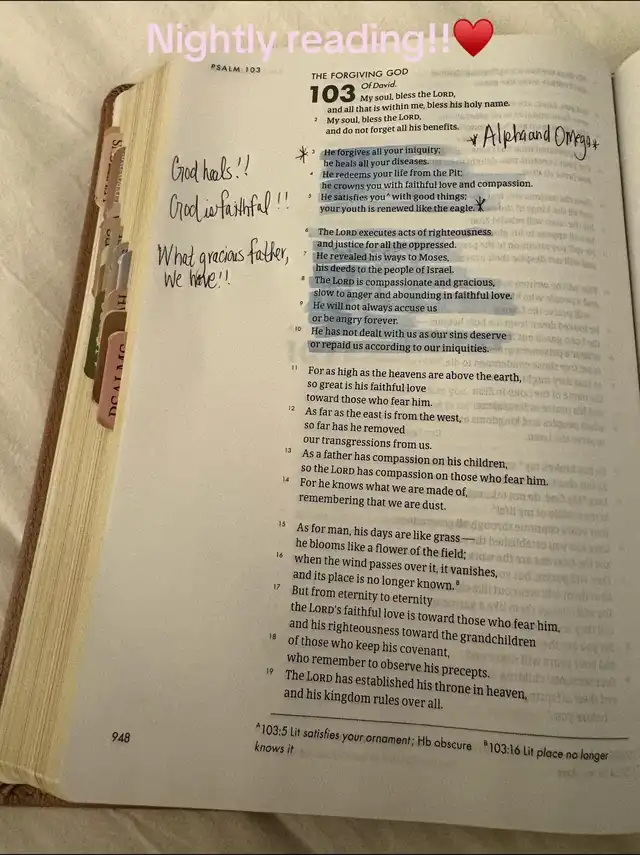 Nightly reading!!❤️
PSALM 103
THE FORGIVING GOD
103 Of David.
My soul, bless the LORD,
and all that is within me, bless his holy name.
2 My soul, bless the LORD,
and do not forget all his benefits.
* Alpha and Omega *
* 3 He forgives all your iniquity;
he heals all your diseases.
4 He redeems your life from the Pit;
he crowns you with faithful love and compassion.
5 He satisfies you^A with good things;
your youth is renewed like the eagle. *
God heals!!
God is faithful!!
What gracious father,
we have!!
6 The LORD executes acts of righteousness
and justice for all the oppressed.
7 He revealed his ways to Moses,
his deeds to the people of Israel.
8 The LORD is compassionate and gracious,
slow to anger and abounding in faithful love.
9 He will not always accuse us
or be angry forever.
10 He has not dealt with us as our sins deserve
or repaid us according to our iniquities.
11 For as high as the heavens are above the earth,
so great is his faithful love
toward those who fear him.
12 As far as the east is from the west,
so far has he removed
our transgressions from us.
13 As a father has compassion on his children,
so the LORD has compassion on those who fear him.
14 For he knows what we are made of,
remembering that we are dust.
15 As for man, his days are like grass —
he blooms like a flower of the field;
16 when the wind passes over it, it vanishes,
and its place is no longer known.^B
17 But from eternity to eternity
the LORD's faithful love is toward those who fear him,
and his righteousness toward the grandchildren
18 of those who keep his covenant,
who remember to observe his precepts.
19 The LORD has established his throne in heaven,
and his kingdom rules over all.
948
^A 103:5 Lit satisfies your ornament; Hb obscure ^B 103:16 Lit place no longer
knows it
PSALMS